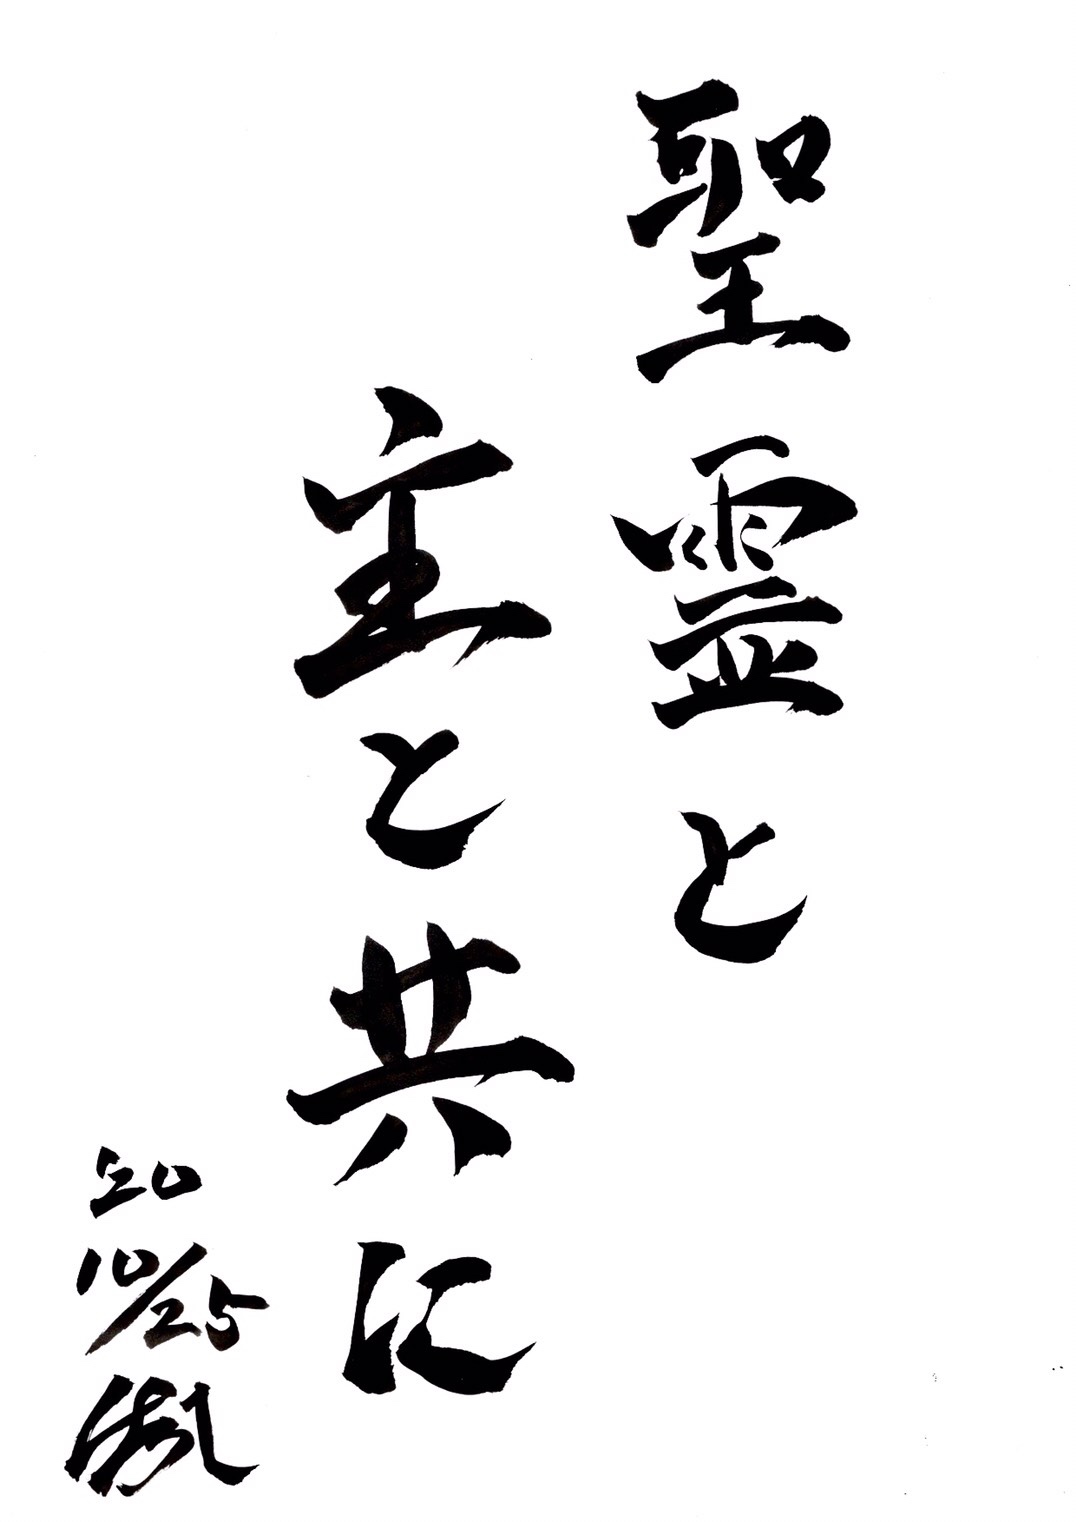 聖霊と
主と共に
20
10/25